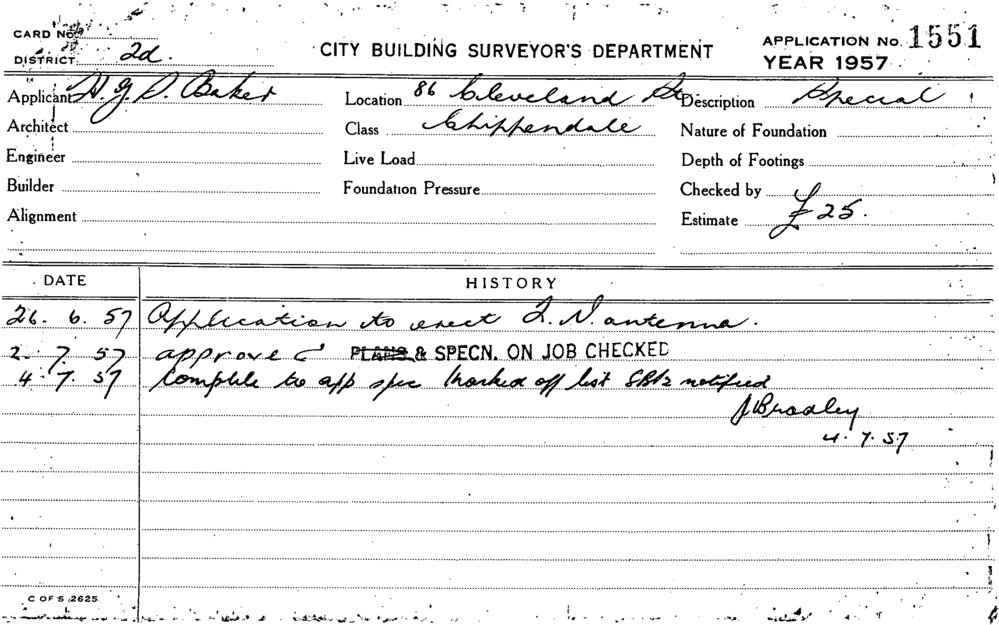 CARD No.
DISTRICT 2d.
CITY BUILDING SURVEYOR'S DEPARTMENT
APPLICATION No. 1551
YEAR 1957
Applicant H. G. D. Baker
Location 86 Cleveland St
Description Special
Architect
Class Chippendale
Nature of Foundation
Engineer
Live Load
Depth of Footings
Builder
Foundation Pressure
Checked by
Alignment
Estimate £25.
DATE HISTORY
26. 6. 57 Application to erect T.V. antenna.
2. 7. 57 approved PLANS & SPECN. ON JOB CHECKED
4. 7. 57 Complete to app spec Marked off list notified
J Bradley
4. 7. 57
C OF S 2625